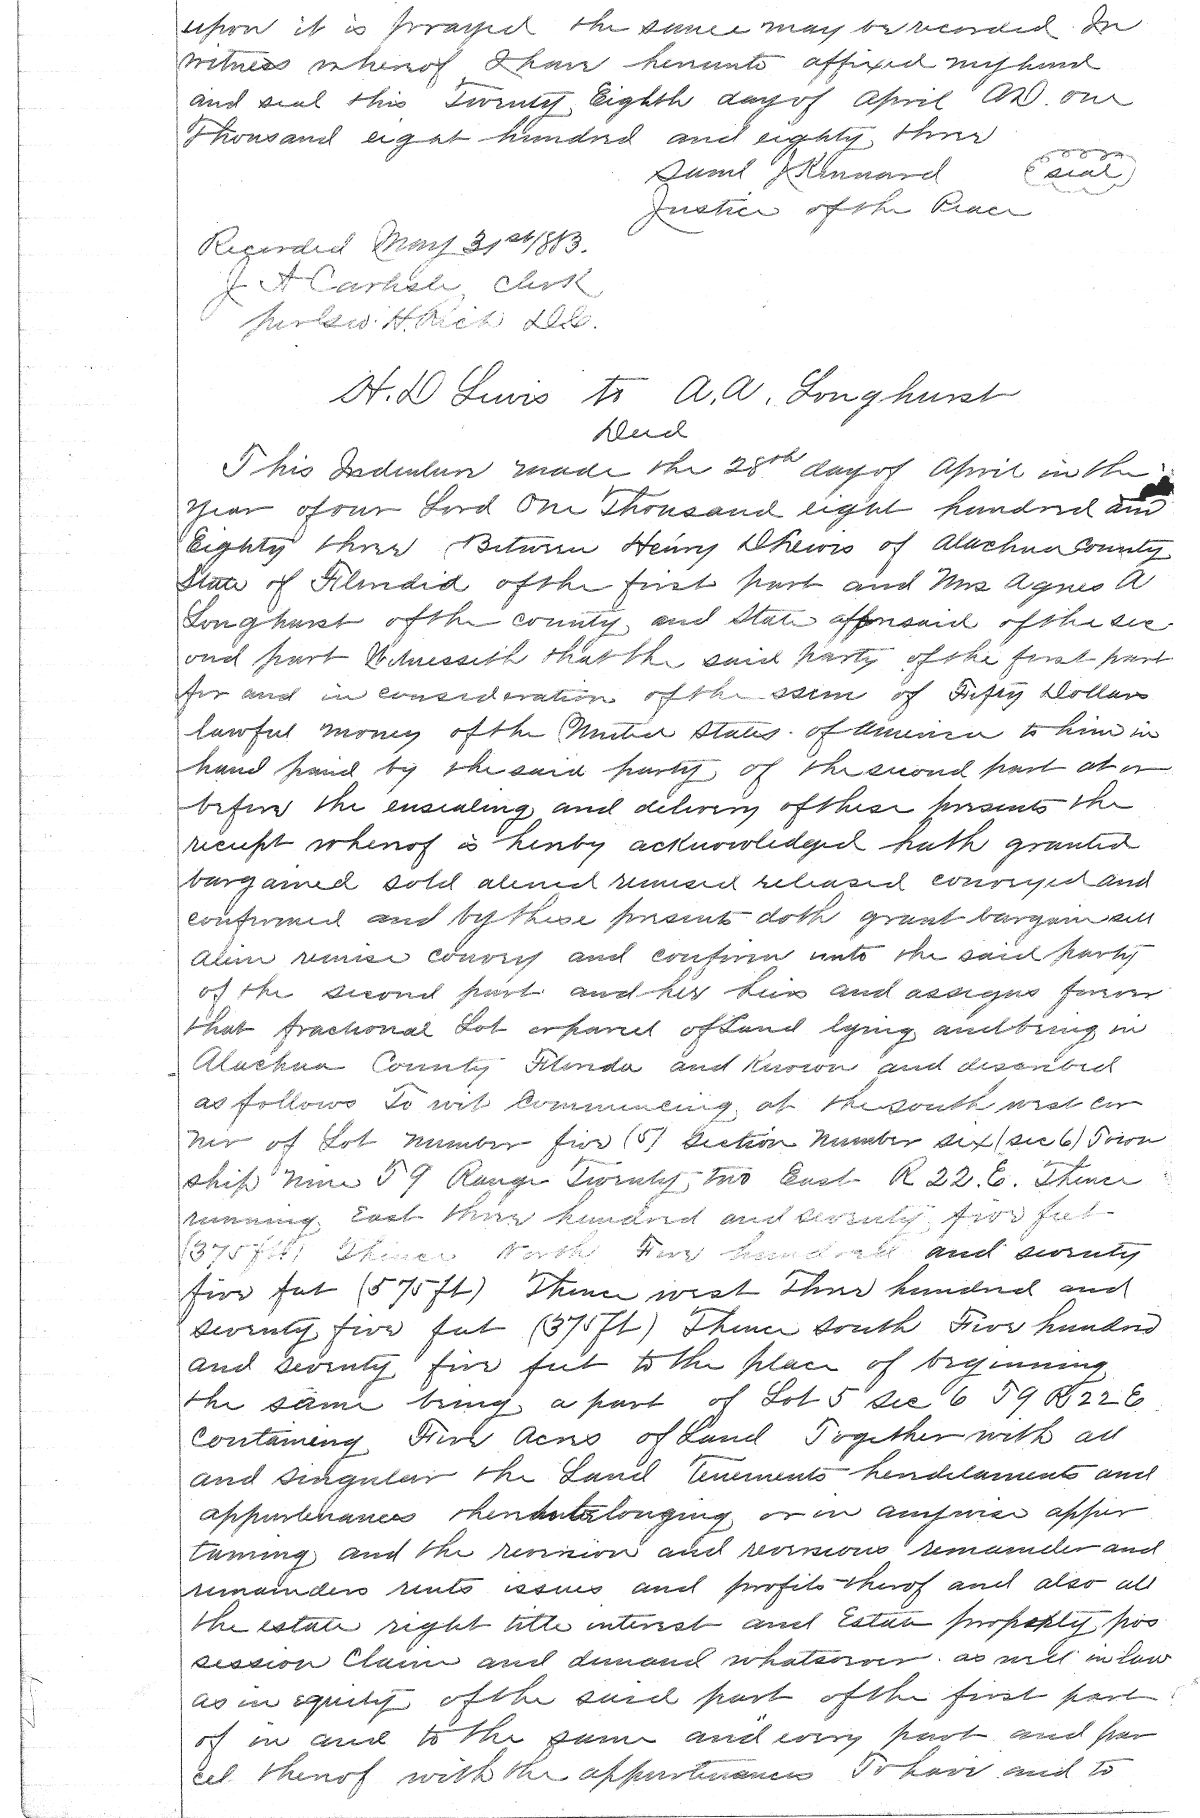 upon it is prayed the same may be recorded In
witness whereof I have hereunto affixed my hand
and seal this Twenty Eighth day of April AD. one
Thousand eight hundred and eighty three
Saml J Kennard (seal)
Justice of the Peace
Recorded May 31st 1883.
J A Carlisle, Clerk
per Geo. H. Rich D.C.
H. D Lewis to A. A. Longhurst
Deed
This Indenture made the 28th day of April in the
Year of our Lord One Thousand eight hundred and
Eighty three Between Henry D Lewis of Alachua County
State of Florida of the first part and Mrs Agnes A
Longhurst of the county and State afforesaid of the sec
ond part Witnesseth that the said party of the first part
for and in consideration of the ssum of Fifty Dollars
lawful money of the United States. of America to him in
hand paid by the said party of the second part at or
before the ensealing and delivery of these presents the
receipt whereof is hereby acknowledged hath granted
bargained sold aliened remised released conveyed and
confirmed and by these presents doth grant bargain sell
alien remise convey and confirm unto the said party
of the second part and her heirs and assigns forever
that fractional Lot or parcel of Land lying and being in
Alachua County Florida and Known and described
as follows To wit Commencing at the south west cor
ner of Lot Number five (5) Section Number six (sec 6) Town
ship Nine T9 Range Twenty two East R 22. E. Thence
running East three hundred and seventy five feet
(375 ft) Thence North Five hundred and seventy
five feet (575 ft) Thence west Three hundred and
seventy five feet (375 ft) Thence south Five hundred
and seventy five feet to the place of beginning
the same being a part of Lot 5 Sec 6 T9 R 22 E
Containing Five Acres of Land Together with all
and singular the Land Tenements hereditaments and
appurtenances thereunto belonging or in anywise apper
taining and the reversion and reversions remainder and
remainders rents issues and profits thereof and also all
the estate right title interest and Estate property pos
session Claim and demand whatsoever. as well in law
as in equity of the said part of the first part
of in and to the same and every part and par
cel thereof with the appurtenances To have and to